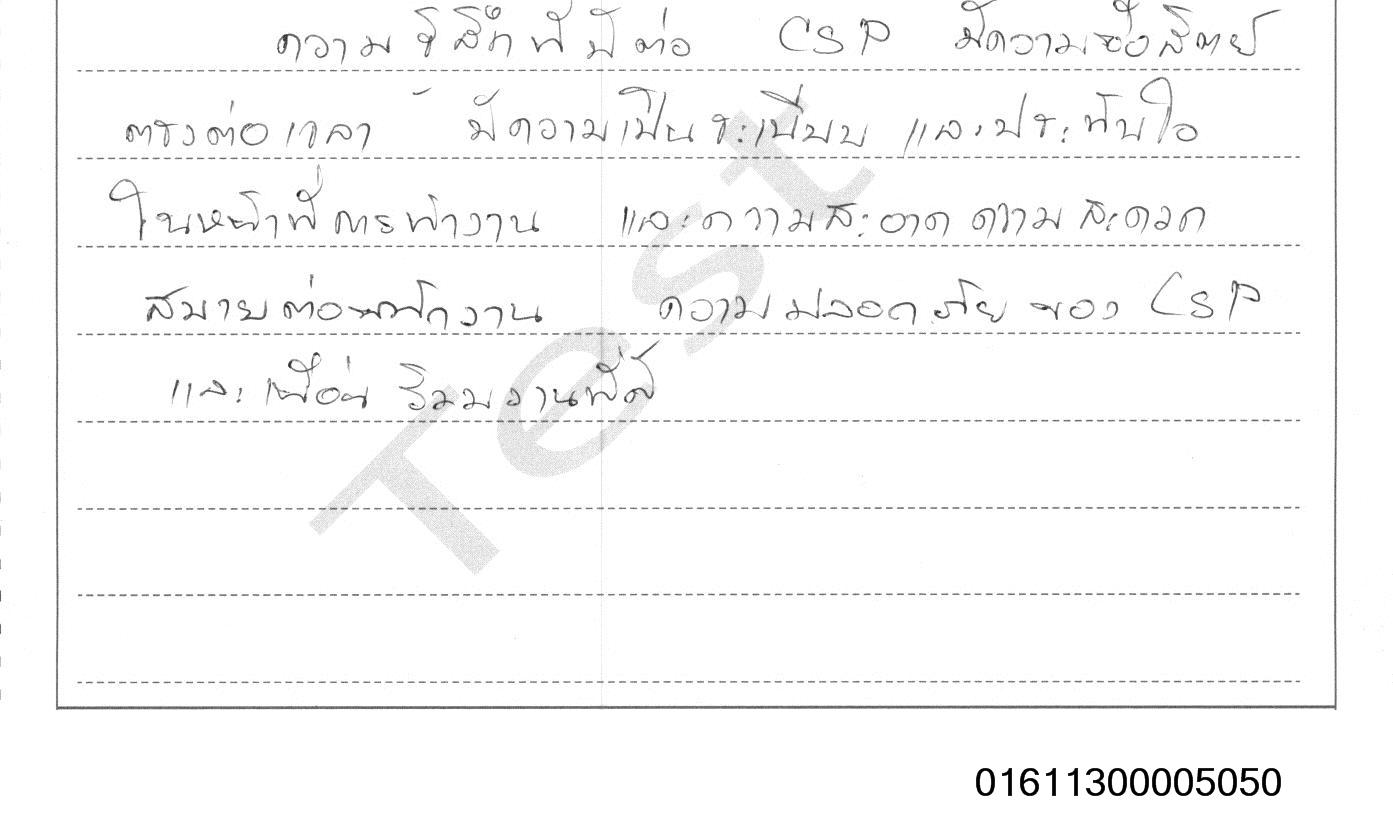 ความรู้สึกที่มีต่อ CSP มีความซื่อสัตย์
ตรงต่อเวลา มีความเป็นระเบียบ และประทับใจ
ในหน้าที่การทำงาน และความสะอาด ความสะดวก
สบายต่อพนักงาน ความปลอดภัย ของ CSP
และเพื่อนร่วมงานที่ดี
Test
01611300005050